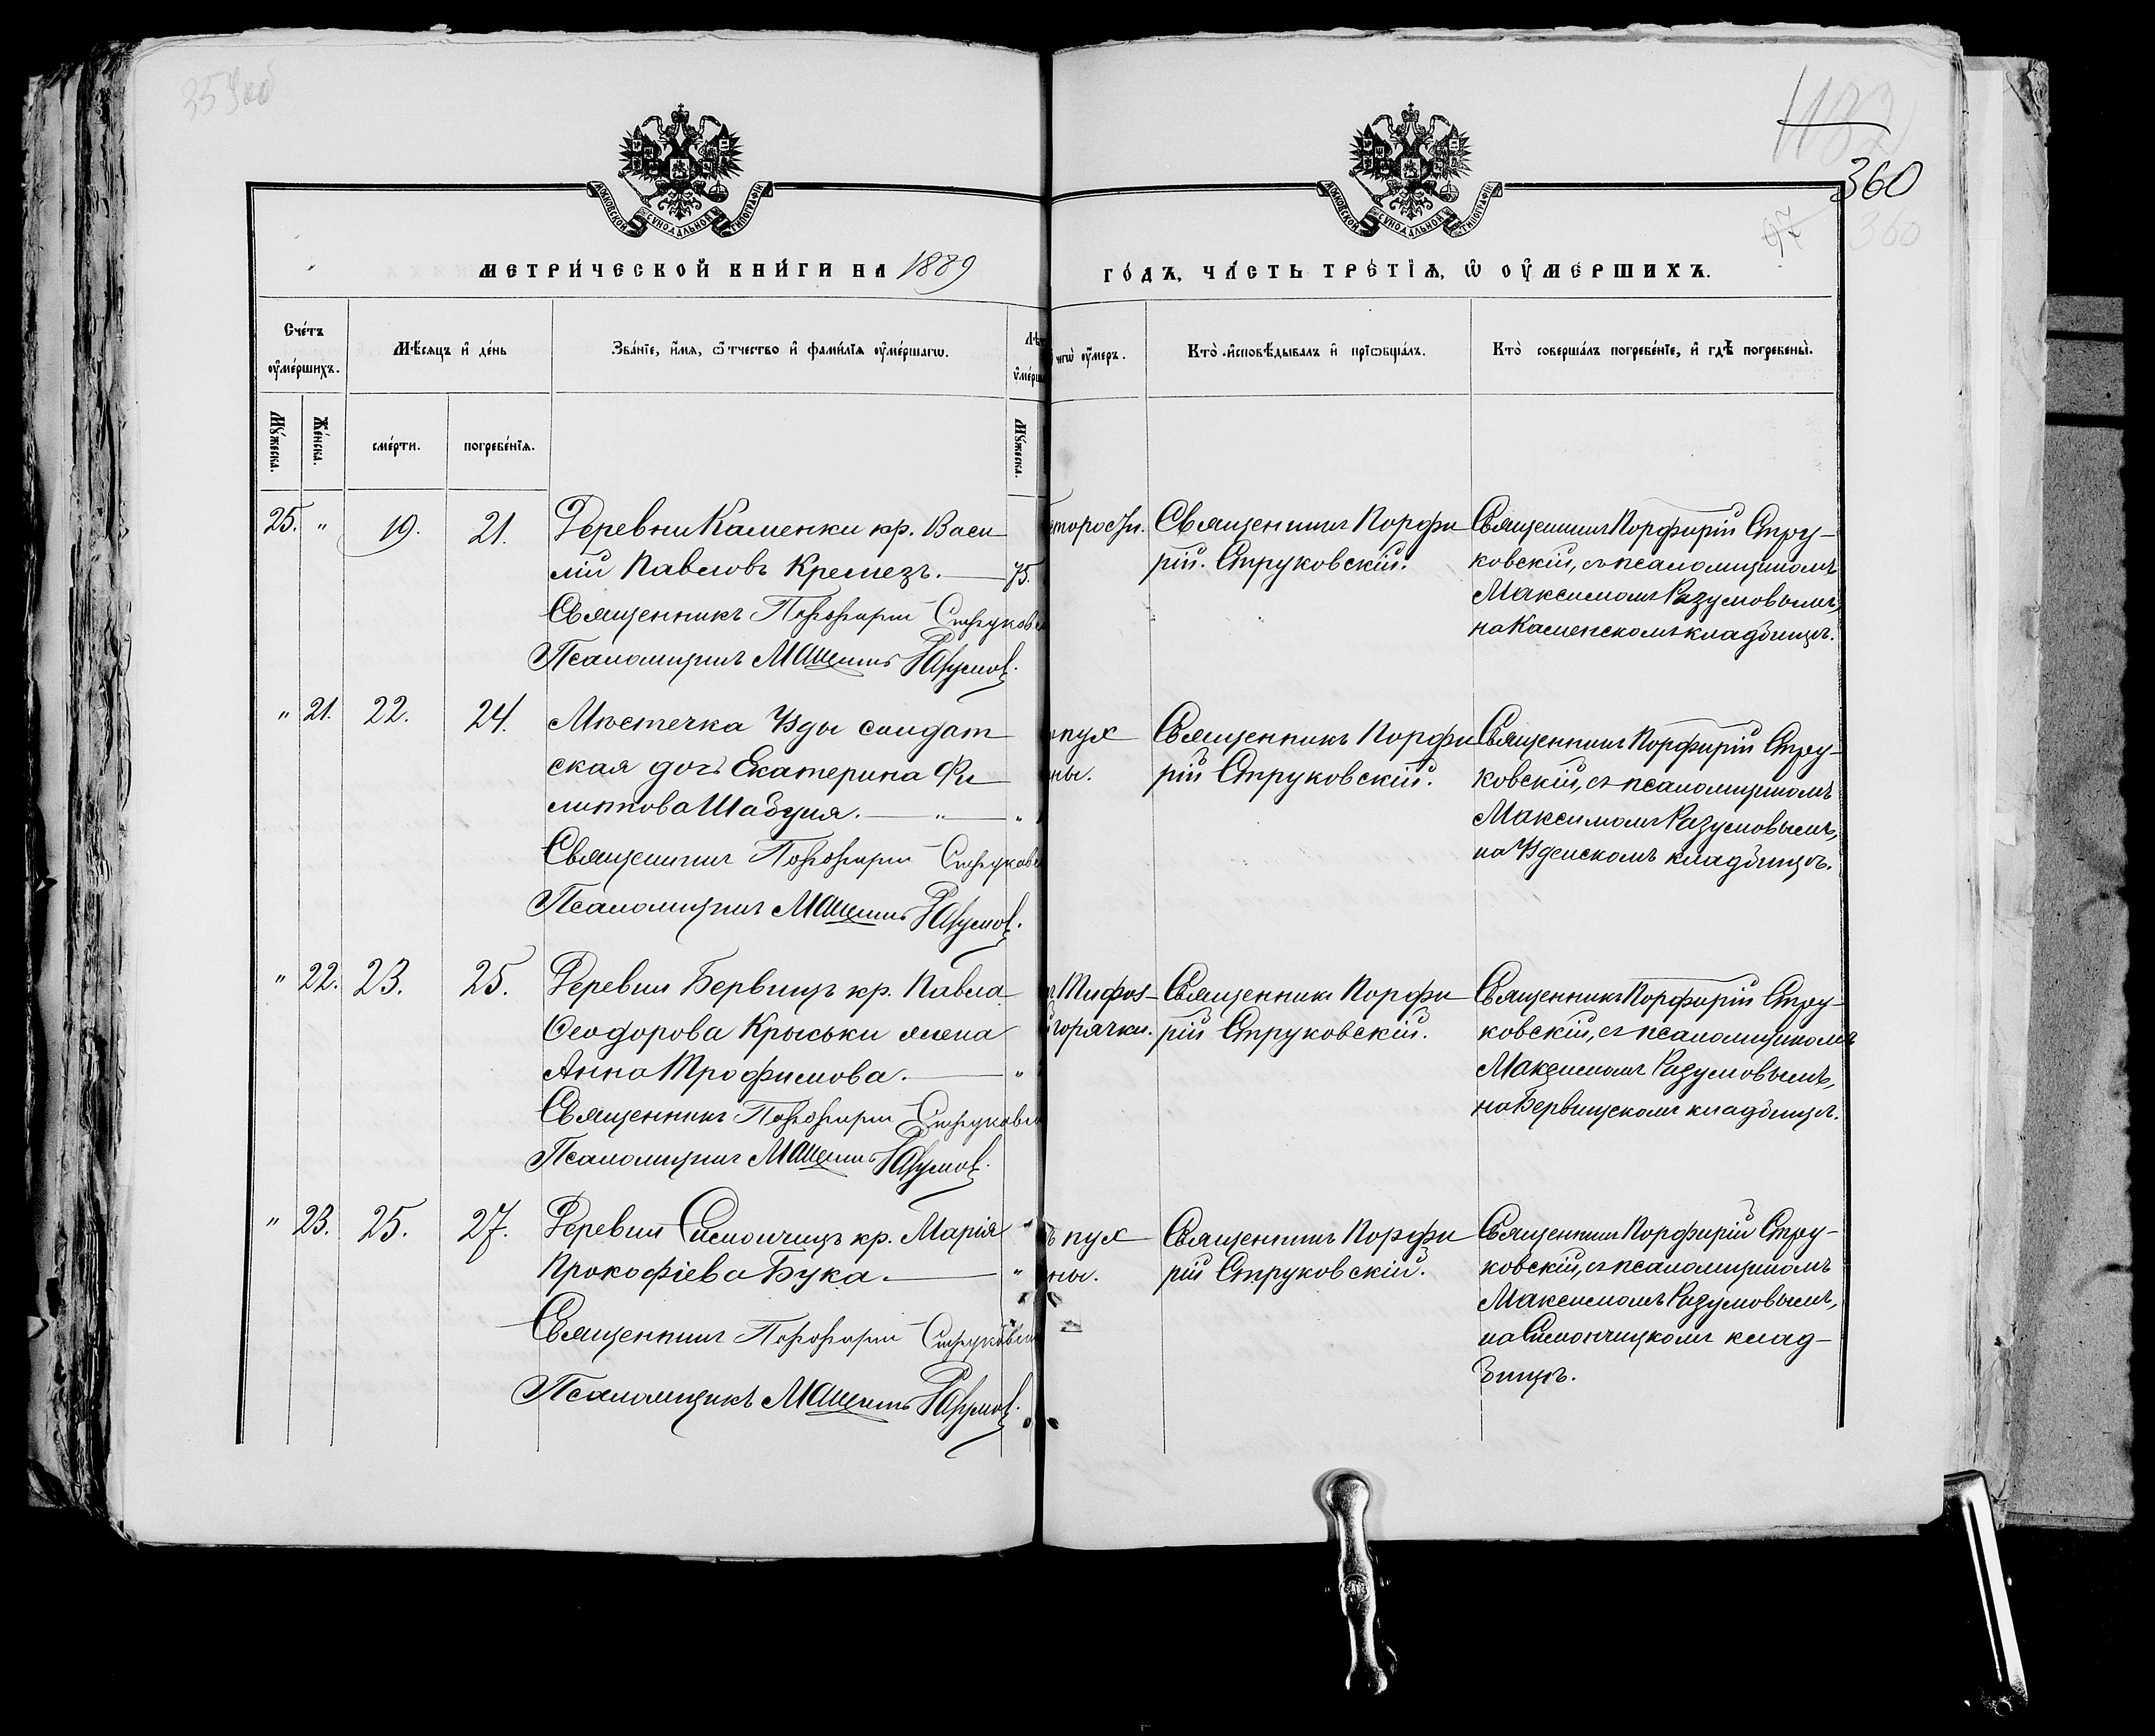 360
МЕТРИ́ЧЕСКОЙ КНИ́ГИ НА 1889
ГО́ДЪ, ЧА́СТЬ ТРЕ́ТІѦ, Ѡ ОУ҆МЕ́РШИХЪ.
Сче́тъ оу҆ме́ршихъ.
Мѣ́сяцъ и҆ де́нь
Зва́нїе, и҆́мя, ѻ҆́тчество и҆ фами́лїя оу҆ме́ршагѡ.
чегѡ̀ оу҆́меръ.
Кто̀ и҆сповѣ́дывалъ и҆ прїѡбща́лъ.
Кто̀ соверша́лъ погребе́нїе, и҆ гдѣ̀ погребены̀.
Му́жеска.
Же́нска.
сме́рти.
погребе́нїя.
Му́жеска.
25. " 19. 21.
Деревни Каменки кр. Васи
лій Павловъ Кремезъ. — 75.
Священникъ Порфирій
Псаломщикъ Максимъ Разумов.
Священникъ Порфи
рій. Струковскій.
Священникъ Порфирій Стру-
ковскій, съ псаломщикомъ
Максимомъ Разумовымъ,
на Каменскомъ кладбищѣ.
" 21. 22. 24.
Мѣстечка Узды солдат
ская дочь Екатерина Фи
липпова Шабуня. — " — "
Священникъ Порфирій
Псаломщикъ Максимъ Разумов.
пух
ны.
Священникъ Порфи
рій Струковскій.
Священникъ Порфирій Стру-
ковскій, съ псаломщикомъ
Максимомъ Разумовымъ,
на Узденскомъ кладбищѣ.
" 22. 23. 25.
Деревни Бервищъ кр. Павла
Ѳеодорова Крыськи жена
Анна Трофимова. — "
Священникъ Порфирій
Псаломщикъ Максимъ Разумов.
Тифоз-
горячки.
Священникъ Порфи
рій Струковскій.
Священникъ Порфирій Стру-
ковскій, съ псаломщикомъ
Максимомъ Разумовымъ,
на Бервищскомъ кладбищѣ.
" 23. 25. 27.
Деревни Симончицъ кр. Марія "
Прокофіева Бука. — "
Священникъ Порфирій
Псаломщикъ Максимъ Разумов.
ъ пух
ны.
Священникъ Порфи
рій Струковскій.
Священникъ Порфирій Стру-
ковскій, съ псаломщикомъ
Максимомъ Разумовымъ,
на Симончицкомъ клад-
бищѣ.